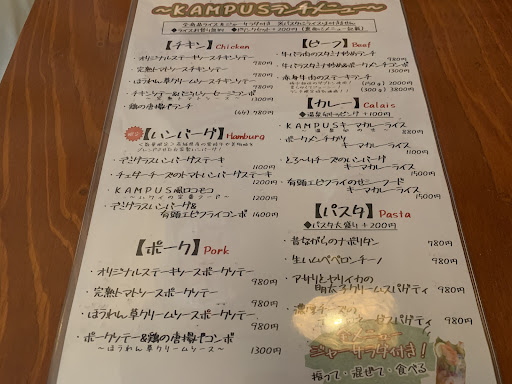 〜KAMPUSランチメニュー〜
【チキン】Chicken
・オリジナルステーキソースチキンソテー 980円
・完熟トマトソースチキンソテー 980円
・ほうれん草クリームソースチキンソテー 980円
1300円
・鶏の唐揚げランチ (6ヶ) 980円
【ハンバーグ】Hamburg
・デミグラスハンバーグステーキ 1100円
・チェダーチーズのトマトハンバーグステーキ 1200円
・KAMPUS風ロコモコ 1200円
・デミグラスハンバーグ&
有頭エビフライコンボ 1400円
【ポーク】Pork
・オリジナルステーキソースポークソテー 980円
・完熟トマトソースポークソテー 980円
・ほうれん草クリームソースポークソテー 980円
・ポークソテー&鶏の唐揚げコンボ
〜ほうれん草クリームソース〜 1300円
【ビーフ】Beef
・牛バラ肉のスタミナ炒めランチ 980円
1300円
・赤身牛肉のステーキランチ
(150g) 2000円
(300g) 3800円
【カレー】Calais
◆温泉卵トッピング +100円
・KAMPUSキーマカレーライス 980円
・ポークメンチカツ
キーマカレーライス 1300円
・とろ〜りチーズのハンバーグ
キーマカレーライス 1500円
・有頭エビフライのシーフード
キーマカレーライス 1500円
【パスタ】Pasta
◆パスタ大盛り +200円
・昔ながらのナポリタン 980円
・生ハムペペロンチーノ 980円
・アサリとヤリイカの
明太子クリームスパゲティ 980円
・濃厚チーズの
スパゲティ 980円
ジャーサラダ付き!
振って・混ぜて・食べる